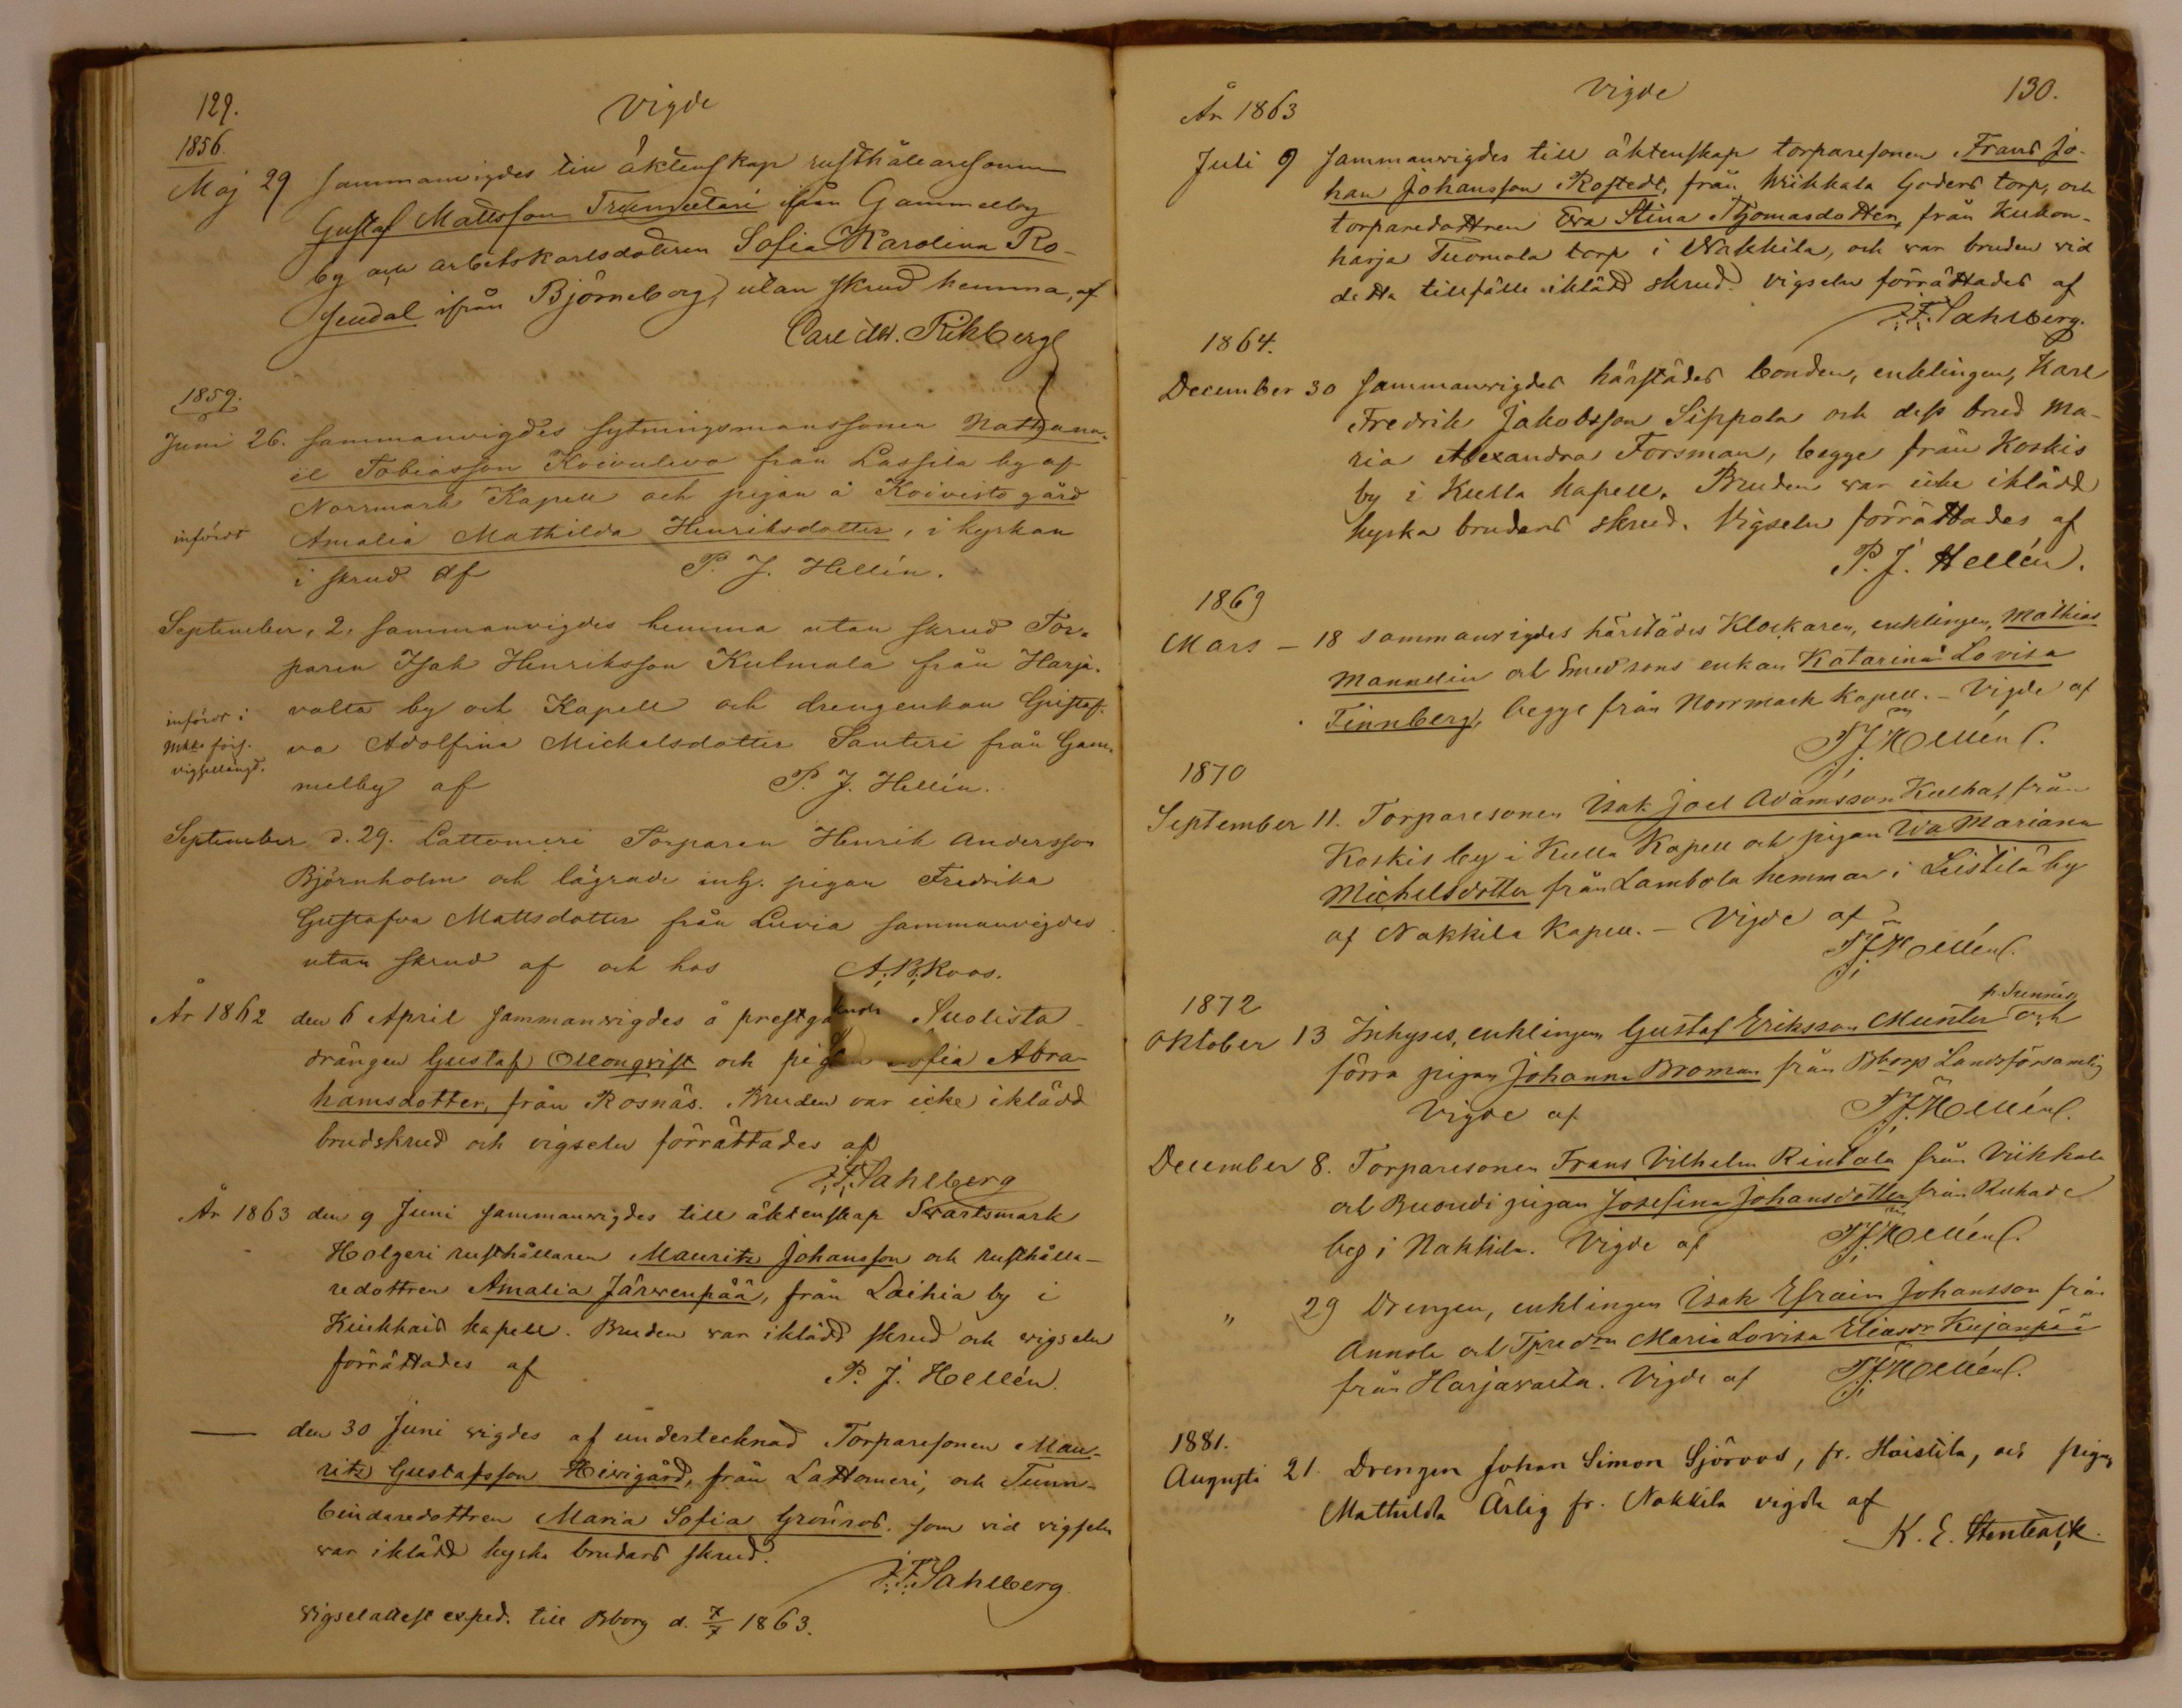 129.
Vigde
1856.
Maj 29 sammanvigdes till äktenskap rusthålaresonen
Gustaf Mattsson Trumetari från Gammelby
by och arbetskarlsdottren Sofia Karolina Ro-
sendal ifrån Björneborg, utan skrud hemma, af
Carl Rikberg
1859.
Juni 26. sammanvigdes sytningsmanssonen Nathana-
el Tobiasson Koivulevo från Lassila by af
Norrmark Kapell och pigan å Koivisto gård
infördt Amalia Mathilda Henriksdotter, i kyrkan
i skrud af P. J. Hellén.
September, 2, sammanvigdes hemma utan skrud Tor-
paren Isak Henriksson Kulmala från Harja-
valta by och Kapell och drengenkan Gustaf-
va Adolfina Michalsdotter Santeri från Gam-
melby af P. J. Hellén.
införd i
förs.
vigsellängd.
September d. 29. Lattomeri Torparen Henrik Andersson
Björnholm och lägrade inh. pigan Fredrika
Gustafva Mattsdotter från Luvia sammanvigdes
utan skrud af och hos A. B. Roos.
År 1862 den 6 April sammanvigdes å prestgå Suolista
drängen Gustaf Ollonqvist och pigan Sofia Abra-
hamsdotter, från Rosnäs. Bruden var icke iklädd
brudskrud och vigseln förrättades af
F. Sahlberg
År 1863 den 9 Juni sammanvigdes till äktenskap Svartsmark
Holgeri rusthållaren Mauritz Johansson och rusthålla-
redottren Amalia Järvenpää, från Laihia by i
Kiukkais kapell. Bruden var iklädd skrud och vigseln
förrättades af P. J. Hellén.
— den 30 Juni vigdes af undertecknad Torparesonen Mau-
ritz Gustafsson Hivigård, från Lattomeri, och Tunn-
bindaredottren Maria Sofia Grönros. som vid vigseln
var iklädd kyska brudars skrud.
F. Sahlberg.
Vigselattest exped. till Bborg d. 7/7 1863.
Vigde
130.
År 1863
Juli 9 sammanvigdes till äktenskap torparesonen Frans Jo-
han Johansson Rostedt, från Wiikkala Goders torp, och
torparedottren Eva Stina Thomasdotter, från Kukon-
harja Tuomola torp i Nakkila, och var bruden vid
detta tillfälle iklädd skrud. Vigseln förrättades af
F. Sahlberg.
1864.
December 30 sammanvigdes härstädes bonden, enklingen, Karl
Fredrik Jakobsson Sippola och dess brud Ma-
ria Alexandra Forsman, begge från Koskis
by i Kulla kapell. Bruden var icke iklädd
kyska brudars skrud. Vigseln förrättades af
P. J. Hellén.
1869
Mars – 18 sammanvigdes härstädes Klockaren, enklingen, Mathias
Mannelin och Smedsons enkan Katarina Lovisa
Finnberg, begge från Norrmark Kapell. – Vigde af
P J Hellén
1870
September 11. Torparesonen Isak Joel Adamsson Kulhat, från
Koskis by i Kulla Kapell och pigan Eva Mariana
Michelsdotter från Lambola hemman i Leistilä by
af Nakkila Kapell. – Vigde af
P J Hellén
1872
Oktober 13 Inhyses, enklingen Gustaf Eriksson Munter och
förra pigan Johanna Broman från Bborgs Landsförsamlig
Vigde af P J Hellén
December 8. Torparesonen Frans Vilhelm Rintala från Viikkala
och Buondi pigan Josefina Johansdotter från Ruhade
by i Nakkila. Vigde af P J Hellén
" 29 Drengen, enklingen Isak Efraim Johansson från
Annola och Tpredrn Maria Lovisa Eliasdr Kujanpää
från Harjavalta. Vigde af P J Hellén
1881.
Augusti 21. Drengen Johan Simon Sjöroos, fr. Haistila, och pigan
Mathilda Ärlig fr. Nakkila vigda af
K. E. Stenbäck.